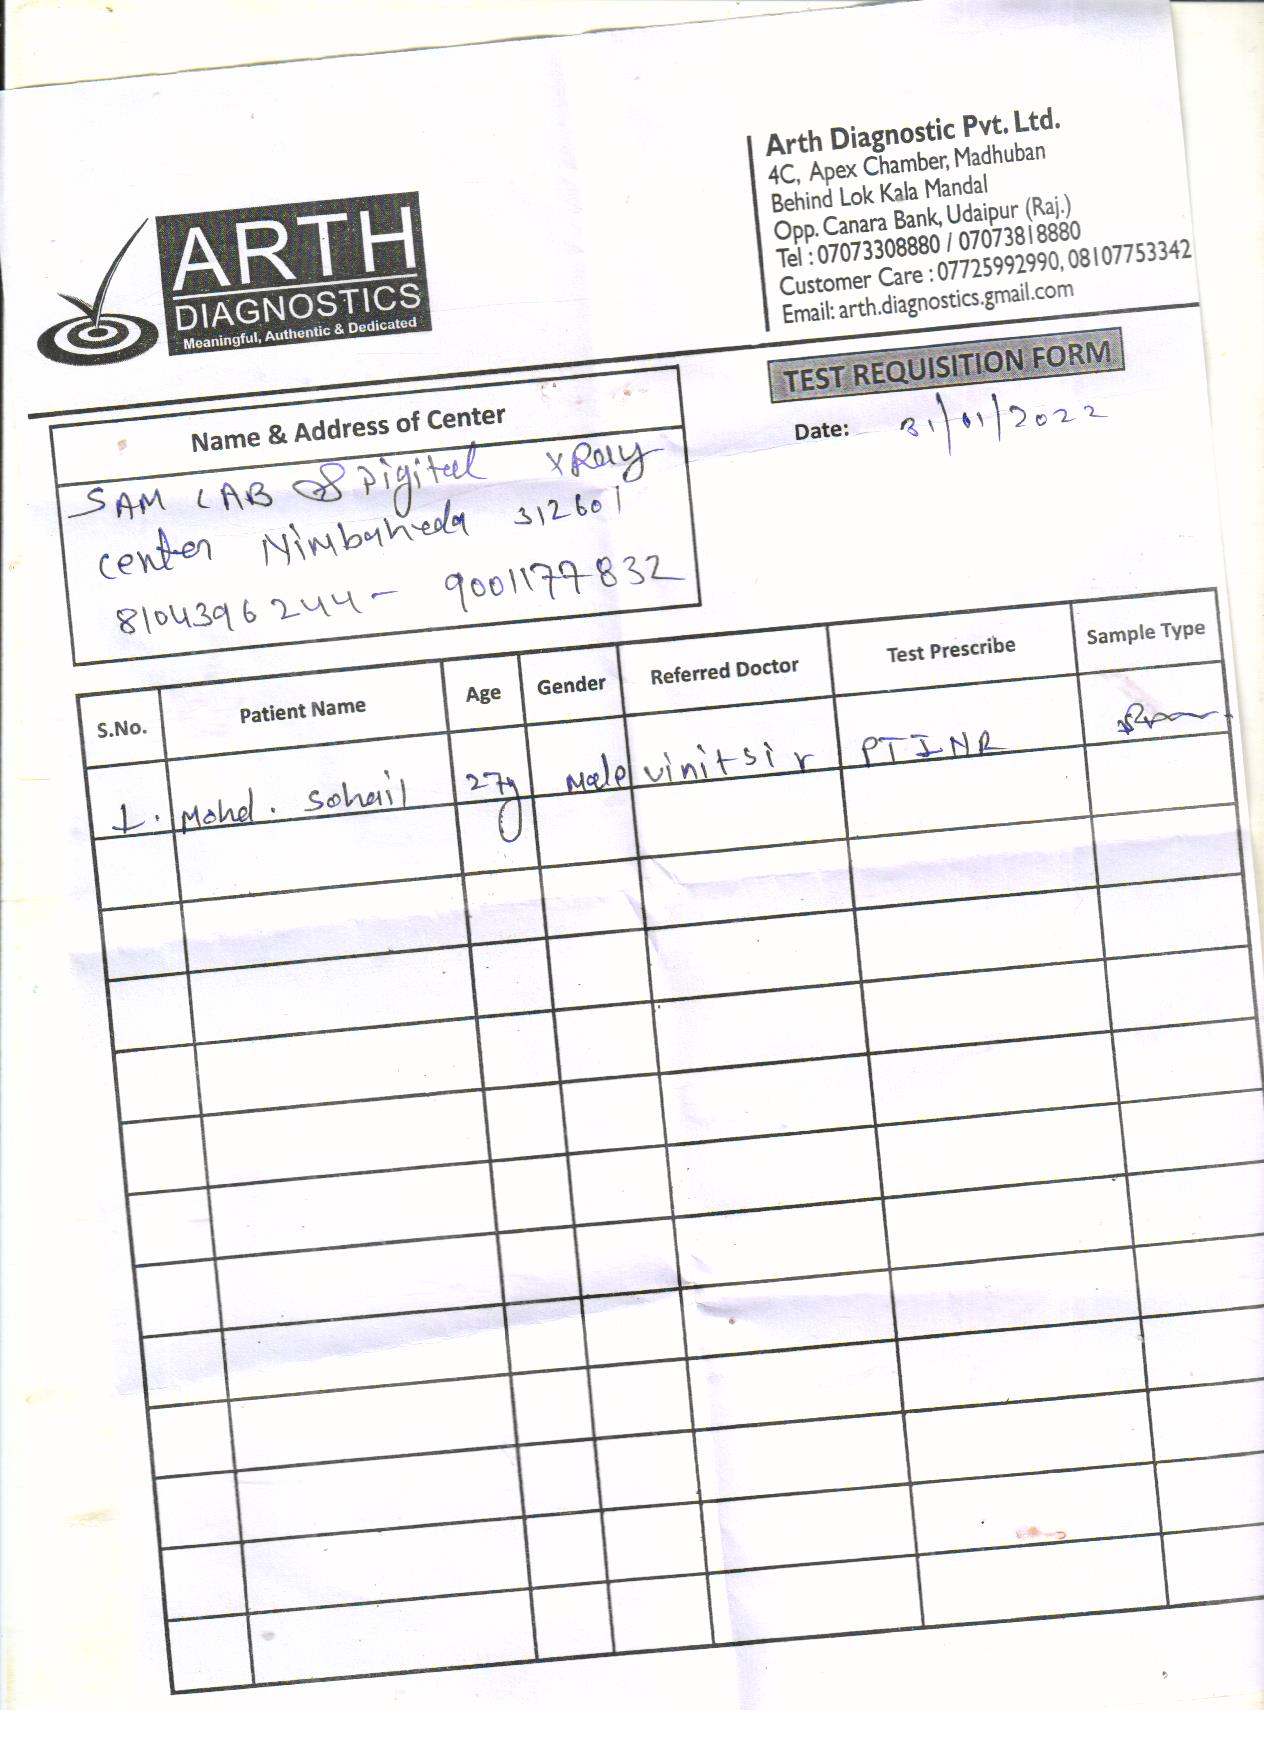 ARTH
DIAGNOSTICS
Meaningful, Authentic & Dedicated
Arth Diagnostic Pvt. Ltd.
4C, Apex Chamber, Madhuban
Behind Lok Kala Mandal
Opp. Canara Bank, Udaipur (Raj.)
Tel : 07073308880 / 07073818880
Customer Care : 07725992990, 08107753342
Email: arth.diagnostics.gmail.com
TEST REQUISITION FORM
Date: 31/01/2022
Name & Address of Center
SAM LAB & Digital XRay
center Nimbaheda 312601
8104396244 - 9001177832
S.No. Patient Name Age Gender Referred Doctor Test Prescribe Sample Type
1. Mohd. Sohail 27y Male vinit sir PTINR